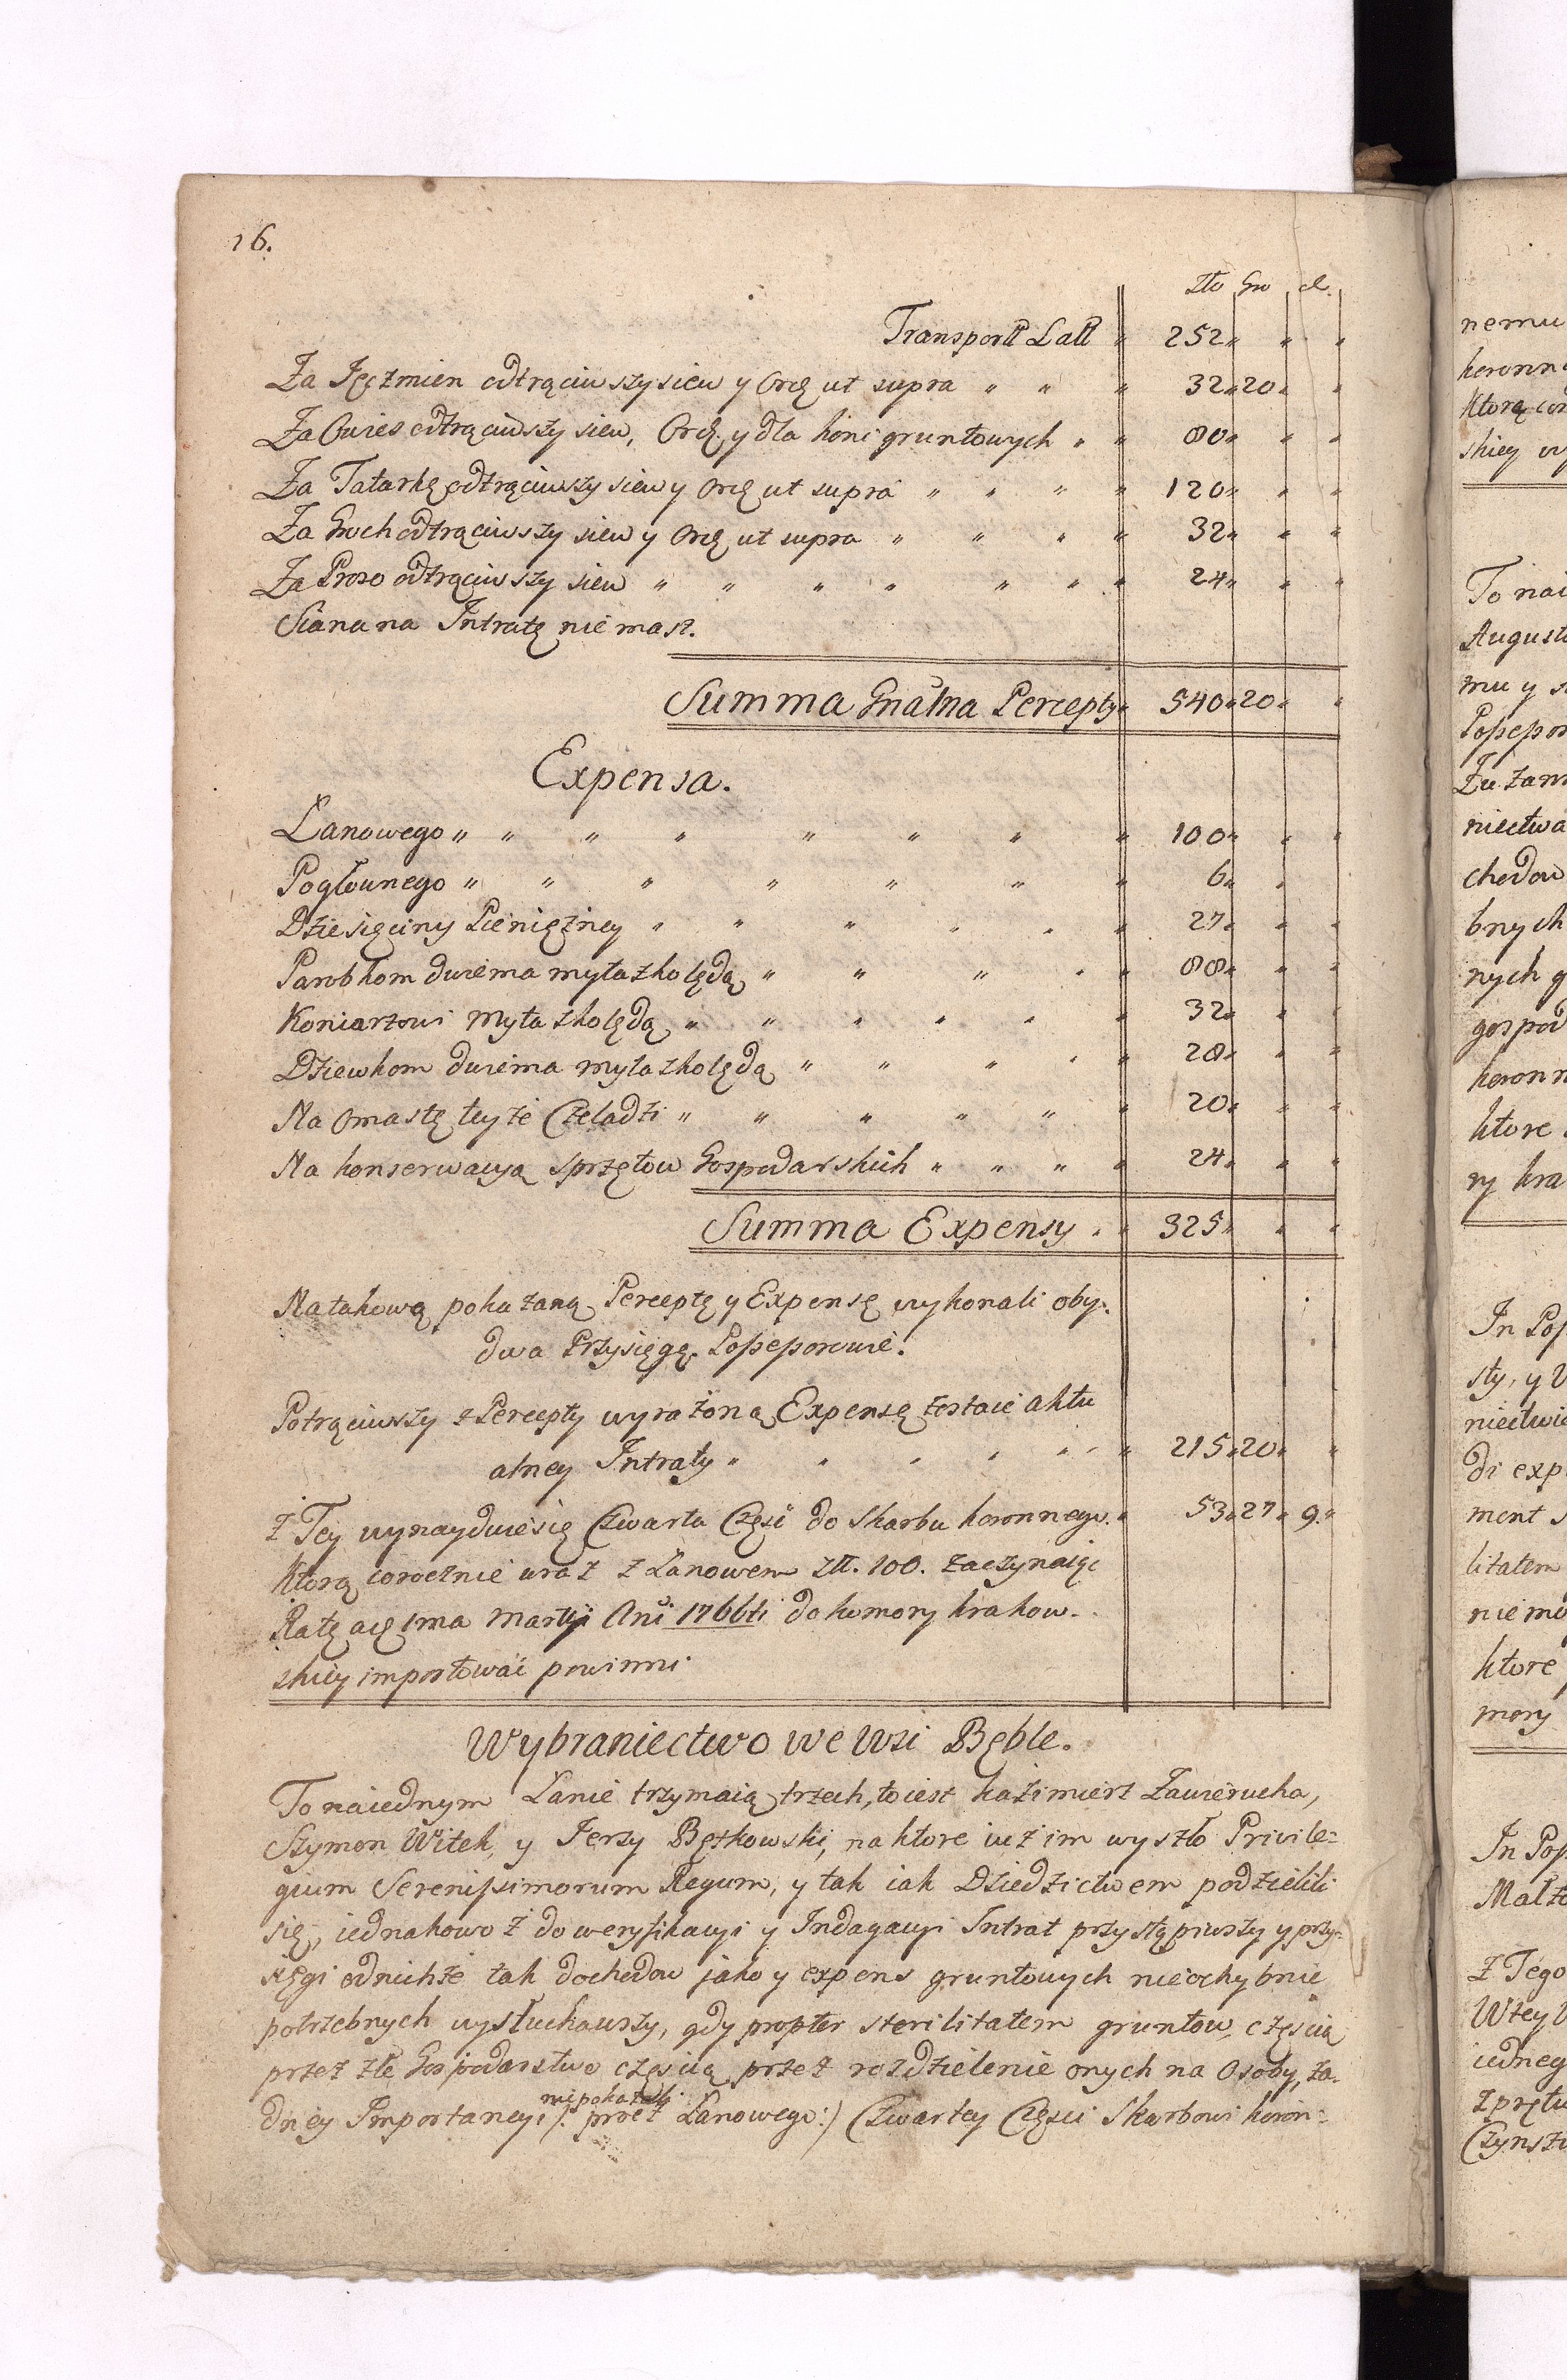 16.
Zło Gro d.
Transport Latt " 252 " " "
Za Jęczmien odtrąciwszy siew y Ord. ut supra " " " 32 " 20 " "
Za Owies odtrąciwszy siew, Ord. y dla koni gruntowych " " 80 " " "
Za Tatarkę odtrąciwszy siew y Ord. ut supra " " " " 120 " " "
Za Groch odtrąciwszy siew y Ord. ut supra " " " " 32 " " "
Za Proso odtrąciwszy siew " " " " " " " 24 " " "
Siana na Intratę nie masz.
Summa Gnalna Percepty " 540 " 20 " "
Expensa.
Łanowego " " " " " " " " 100 " " "
Pogłownego " " " " " " " 6 " "
Dziesięciny Pieniężney " " " " " " 27 " " "
Parobkom dwiema myta z kolędą " " " " " 88 " " "
Koniarzowi Myta z kolędą " " " " " " 32 " " "
Dziewkom dwiema myta z kolędą " " " " " 28 " " "
Na Omastę teyże Czeladzi " " " " " " 20 " " "
Na konserwacyą sprzętow Gospodarskich " " " " 24 " " "
Summa Expensy " " 325 " " "
Na takową pokazaną Perceptę y Expensę wykonali oby-
dwa Przysięgę Possessorowie.
Potrąciwszy z Percepty wyrażoną Expensę zostaie aktu
alney Intraty " " " " " " " 215 " 20 " "
Z Tey wynaydzie się Czwarta Część do Skarbu koronnego " 53 " 27 " 9 "
Którą corocznie wraz z Łanowem złł. 100. zaczynaiąc
Ratę a die 1ma Martij Anni 1766ti do komory krakow-
skiey importować powinni
Wybraniectwo we Wsi Bęble.
To na iednym Łanie trzymaią trzech, to iest Kazimierz Zawierucha,
Szymon Witek, y Jerzy Bętkowski, na ktore iuż im wyszło Privile=
gium Serenissimorum Regum, y tak iak Dziedzictwem podzielili
się, iednakowoż do weryfikacyi y Indagacyi Intrat przystąpiwszy y przy=
sięgi od nichże tak dochodow jako y expens gruntowych nieochybnie
potrzebnych wysłuchawszy, gdy propter sterilitatem gruntow, częscią
przez złe Gospodarstwo częscią przez rozdzielenie onych na Osoby, ża-
nie pokazali
dney Importancyi /: procz Łanowego :/ Czwartey Części Skarbowi koron=